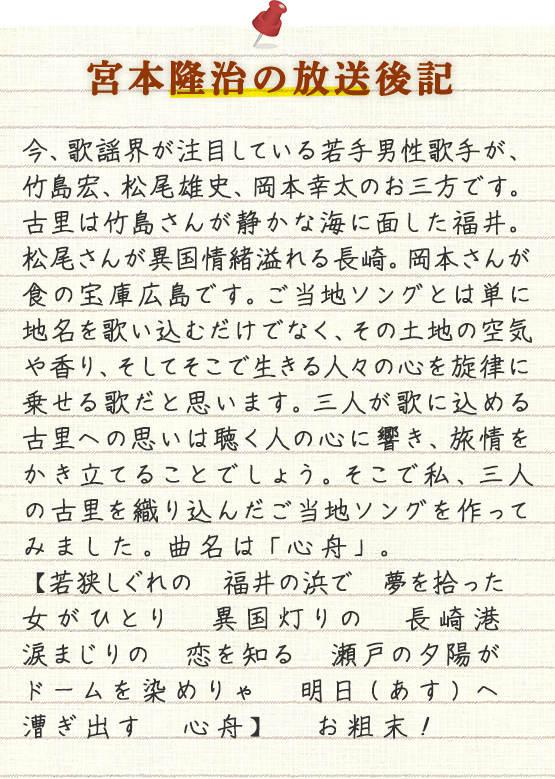 宮本隆治の放送後記
今、歌謡界が注目している若手男性歌手が、
竹島宏、松尾雄史、岡本幸太のお三方です。
古里は竹島さんが静かな海に面した福井。
松尾さんが異国情緒溢れる長崎。岡本さんが
食の宝庫広島です。ご当地ソングとは単に
地名を歌い込むだけでなく、その土地の空気
や香り、そしてそこで生きる人々の心を旋律に
乗せる歌だと思います。三人が歌に込める
古里への思いは聴く人の心に響き、旅情を
かき立てることでしょう。そこで私、三人
の古里を織り込んだご当地ソングを作って
みました。曲名は「心舟」。
【若狭しぐれの　福井の浜で　夢を拾った
女がひとり　異国灯りの　長崎港
涙まじりの　恋を知る　瀬戸の夕陽が
ドームを染めりゃ　明日（あす）へ
漕ぎ出す　心舟】　お粗末！